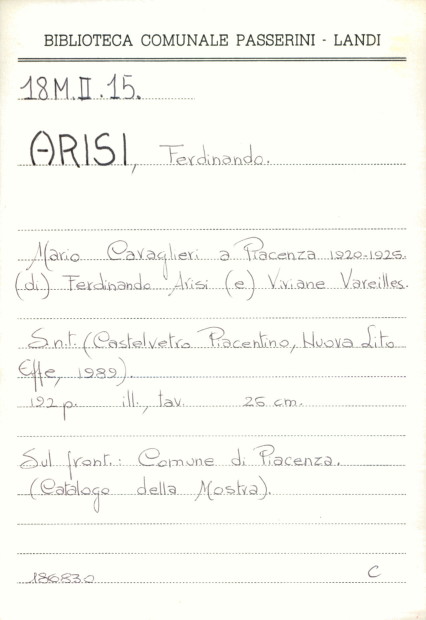 BIBLIOTECA COMUNALE PASSERINI - LANDI
18M.II.15.
ARISI, Ferdinando.
Mario Cavaglieri a Piacenza 1920-1925.
(di) Ferdinando Arisi (e) Viviane Vareilles.
S.n.t. (Castelvetro Piacentino, Nuova Lito
Effe, 1989).
192 p. ill., tav. 25 cm.
Sul front.: Comune di Piacenza.
(Catalogo della Mostra).
186830 C